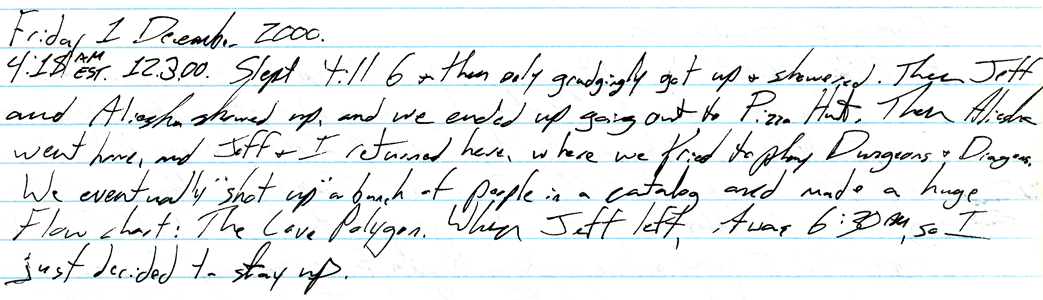 Friday 1 December 2000.
4:18 AM EST. 12.3.00. Slept 4:11 6 + then only grudgingly got up + showered. Then Jeff
and Aliesha showed up, and we ended up going out to Pizza Hut. Then Aliesha
went home, and Jeff + I returned here, where we tried to play Dungeons + Dragons.
We eventually "shot up" a bunch of people in a catalog and made a huge
Flow chart: The Love Polygon. When Jeff left, it was 6:30 AM, so I
just decided to stay up.